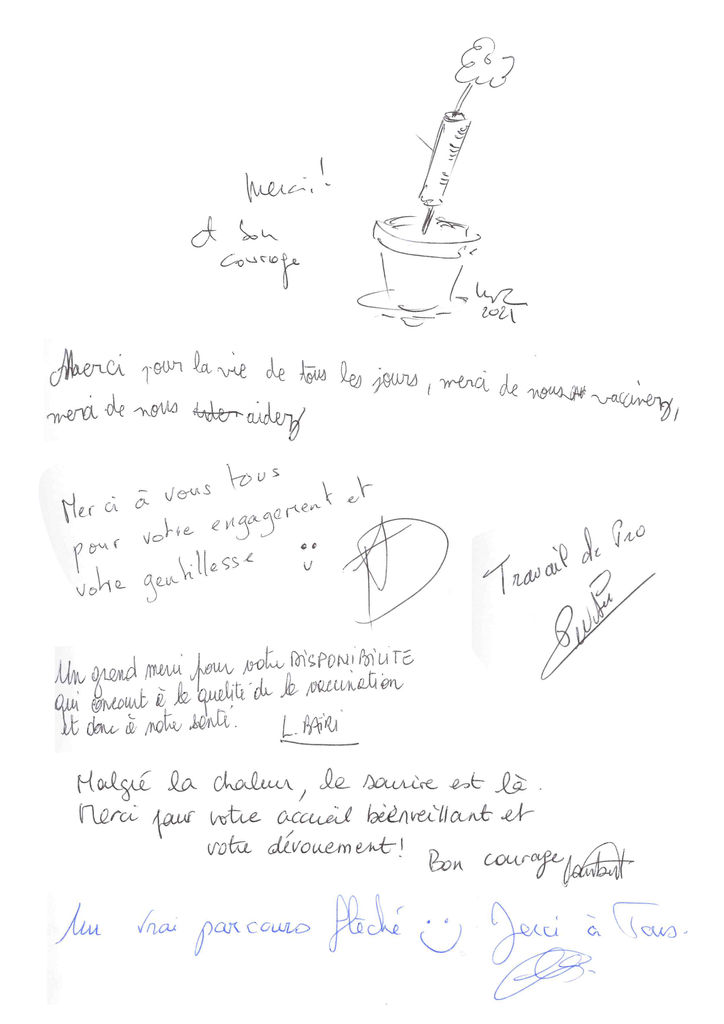 Merci !
et bon
courage
2021
Merci pour la vie de tous les jours, merci de nous vacciner,
merci de nous aider
Merci à vous tous
pour votre engagement et
votre gentillesse
Travail de Pro
Un grand merci pour votre DISPONIBILITE
qui concourt à la qualité de la vaccination
et donc à notre santé.
L. BAIRI
Malgré la chaleur, le sourire est là.
Merci pour votre accueil bienveillant et
votre dévouement !
Bon courage
Un vrai parcours flèché Merci à Tous.